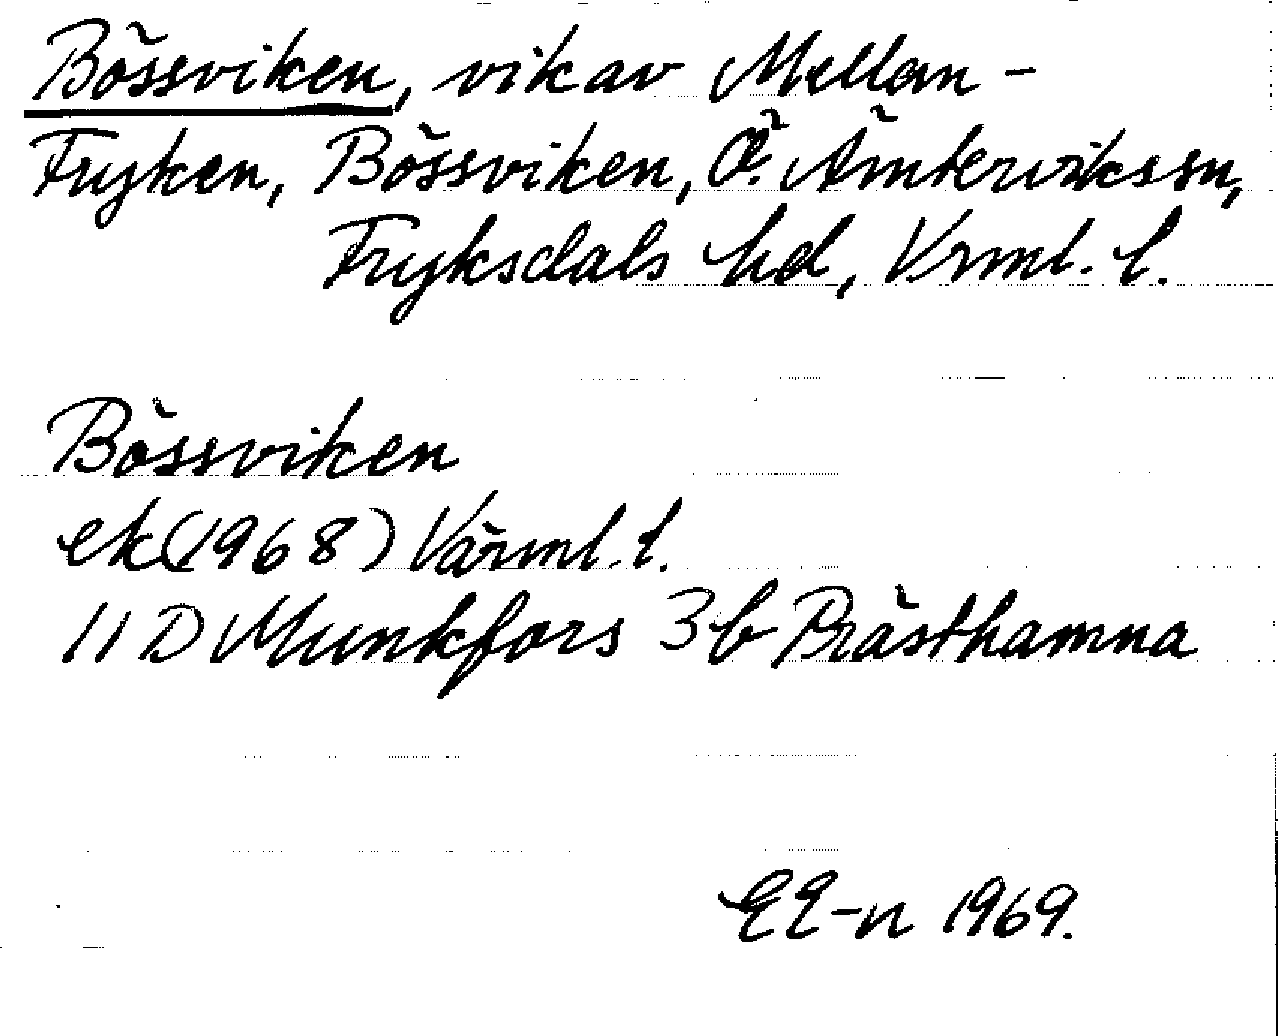 Bössviken, vik av Mellan-
Fryken, Bössviken, Ö. Ämterviks sn,
Fryksdals hd, Vrml. l.
Bössviken
ek (1968) Värml. l.
11 D Munkfors 3 b Prästhamna
EE-n 1969.